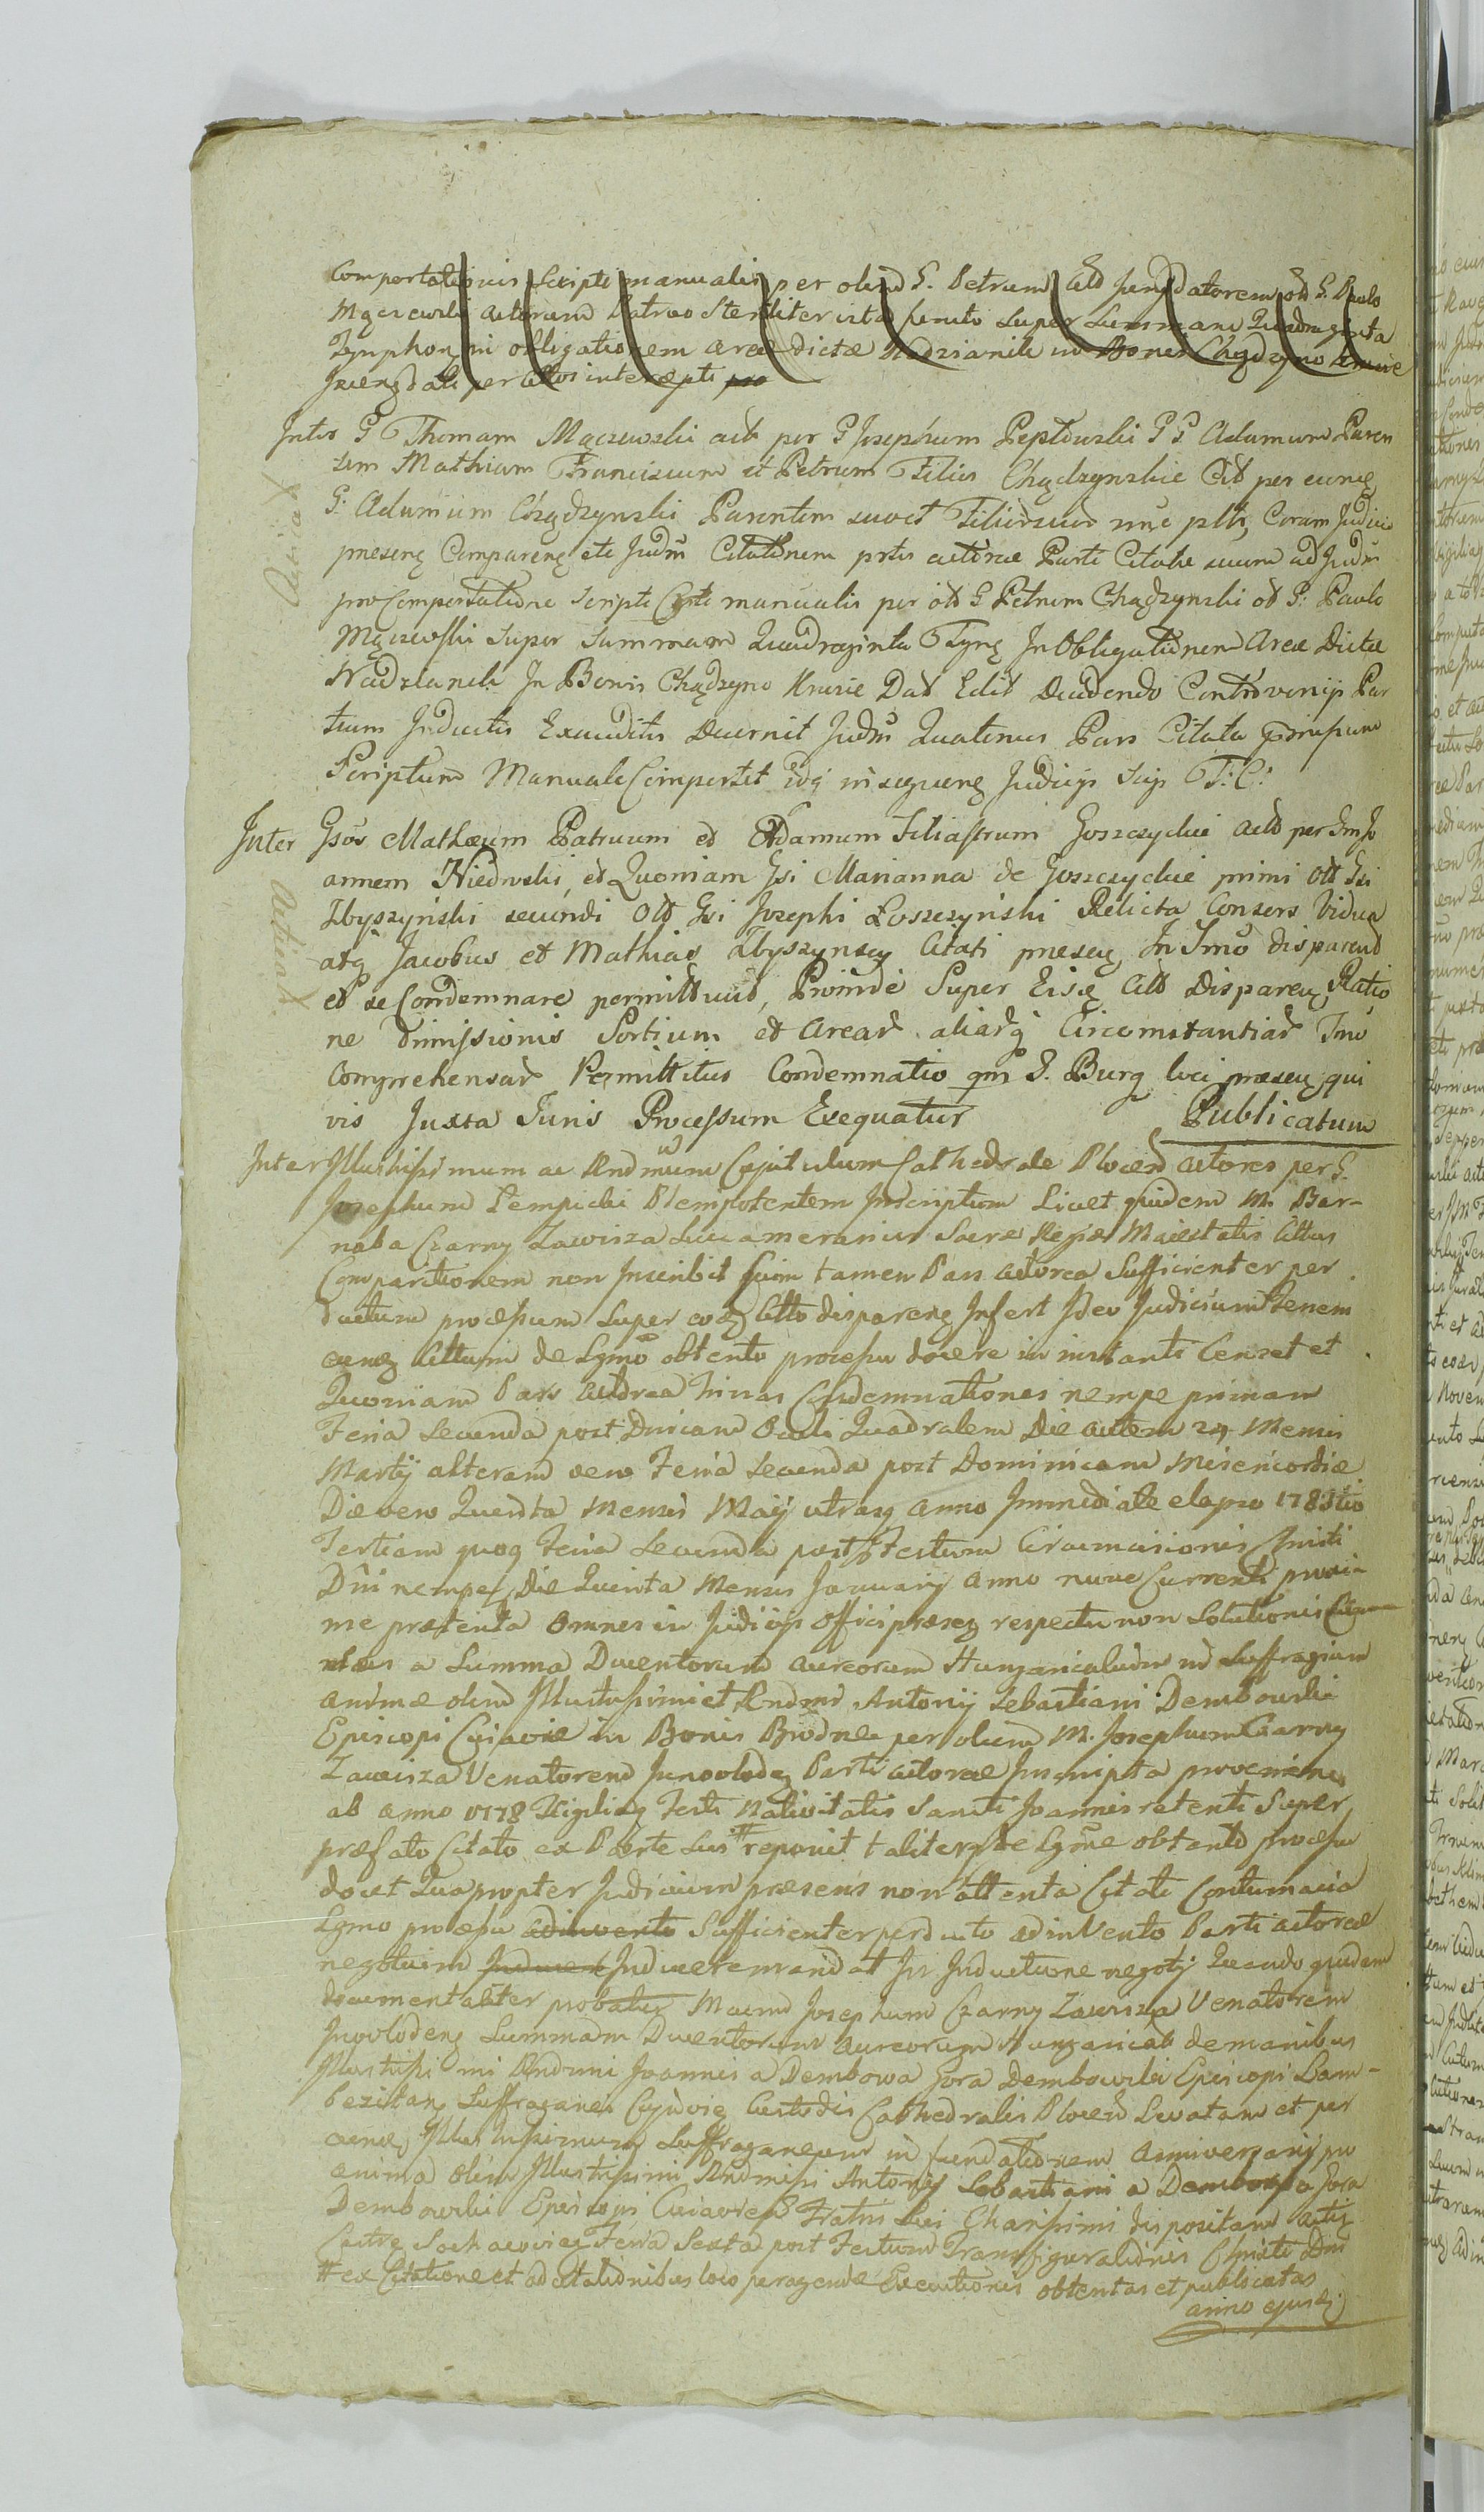 Comportationis Scripti manualis per olim G. Petrum
Mączewski actorum Patruo Steriliter ista super Summam Quadraginta
Tynphon in obligationem areæ dictæ Nadzianek in Bonis Chądzyno Krusie
per illos intercepti pro
Inter G Thomam Mączewski act per G Josephum Peptowski GG Adamum Paren
tem Mathiam Franciscum et Petrum Filios Chądzynskie Cit per eunq
G. Adamum Chądzynski Parentem suo et Filiorum nne Coram Judicio
presenq Comparenq Citationem prtis actoreæ Parti Citatæ suum ad Judm
pro Comportatione Scripti manualis per olt G Petrum Chądzynski ot G: Paulo
Mączewski Super Summam Quadraginta Tynq In Obligationem Areæ Dictæ
Nadzianek In Bonis Chądzyno Krusie Dat Edit Decidendo Controversijs Par
tium Inductis Exauditis Decernit Judm Quatenus Pars Citata
Scriptum Manuale Comportet idq in sequenq Judicijs Sup T: C:
Acticat
Inter Gsos Mathæum Patruum et Adamum Filiastrum Goszczyckie actt per Jo
annem Niedrski, et Quoniam Gsi Marianna de Goszczyckie primi olt Gsi
Zbyszyński secundi Olt Gsi Josephi Łoszczyński Relicta Consors Vidua
atq Jacobus et Mathias Zbyszynscy Citati presenq In Tmo disparent
et se Condemnare permittunt, Proinde Super Eisq Citt Disparenq Ratio
ne dimissionis Sortium et Arear aliarq Circumstantiar Tmo
Comprehensar Permittitur Condemnatio qm G. Burg loci præsenq qui
vis Juxta Juris Processum Exequatur Publicatum
Acticat
Inter Illustrissimum ac Rndmum Capitulum Cathedrale Plocen actores per G.
Josephum Lempicki Plenipotentem Inscriptum Licet quidem M. Bar-
naba Czarny Zawisza Succamerarius Sacræ Regiæ Maiestatis Cittus
Comparitionem non Inscribit tamen Pars actorea Sufficienter per
ductum processum Super eodq Citto disparenq Infert Ideo Judicium
Cittum de Lgmo obtento processu docere in instanti Censet et
Quoniam Pars actorea trinas Condemnationes nempe primam
Feria Secunda post Dnicam Oculi Quadralem Die autem 24 Mensis
Martij alteram vero Feria Secunda post Dominicam Misericordiæ
Die vero Quinta Mensis Maij utrasq Anno Immediate elapso 1783tio
Tertiam quoq Feria Secunda post Festum Circumcisionis Christi
Dni nempe Die Quinta Mensis Januarij Anno nunc Currenti proxi-
me præterita omnes in Judicijs Offici præsenq respectu non Solutionis
a Summa Ducentorum aureorum Hungaricalium in Suffragium
animæ olim Illustrissimi et Rndmi Antonij Sebastiani Dembowski
Episcopi Cujaviæ in Bonis Brodnia per olim M. Josephum Czarny
Zawisza Venatorem Inovlodq Parti actoreæ Inscripta
ab Anno 1778 Vigiliaq Festi Nativitatis Sancti Joannis retenti Super
præfato Citato ex Parte sui # reponit taliterq de Lgme obtento processu
docet Quapropter Judicium præsens non attenta Citati Contumacia
Lgmo processu adinvento Sufficienter perducto adinvento Parti actoreæ
negotium Inducere Inducere mandat In Inductione negotij Quando quidem
documentaliter probatur Mcum Josephum Czarny Zawisza Venatorem
Inovlodenq Summam Ducentorum aureorum Hungarical de manibus
Illustrissi mi Rndmi Joannis a Dembowa Gora Dembowski Episcopi Lam-
bezitanq Suffraganei Cujaviq Custodis Cathedralis Plocen Levatam et per
Illustrissimum Suffraganeum in fundationem Anniversarij pro
anima olim Illustrissimi Rndmissi Antonij Sebastiani a Dembowa Gora
Dembowski Episcopi Cuiavien Fratris Sui Charissimi dispositam actis
Castrq Sochacovienq Feria Sexta post Festum Transfigurationis Christi Dni
# ex Citatione et adcitationibus loco peragendæ Executionis obtentas et publicatas
anno ejusdq